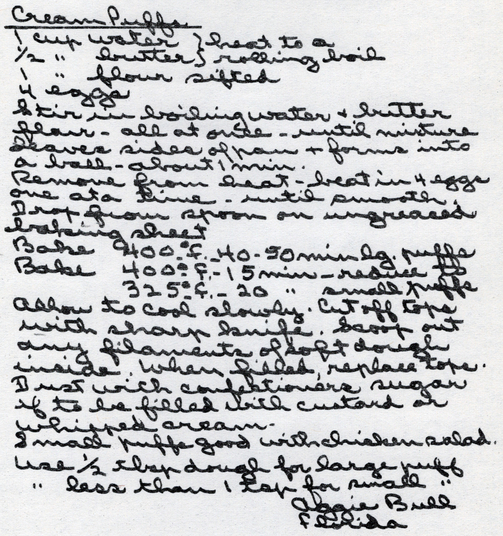 Cream Puffs
1 cup water } heat to a
1/2 " butter } rolling boil
1 " flour sifted
4 eggs
Stir in boiling water + butter
flour - all at once - until mixture
leaves sides of pan + forms into
a ball - about 1 min.
Remove from heat - beat in 4 eggs
one at a time - until smooth.
Drop from spoon on ungreased
baking sheet
Bake 400° F. - 40-50 min lg. puffs
Bake 400° F. - 15 min - reduce to
325° F. - 20 " small puffs
Allow to cool slowly. Cut off tops
with sharp knife. Scoop out
any filaments of soft dough
inside. When filled, replace tops.
Dust with confectioners sugar
if to be filled with custard or
whipped cream.
Small puffs good with chicken salad.
Use 1/2 tbsp dough for large puff
" less than 1 tsp for small "
Aggie Bull
Florida